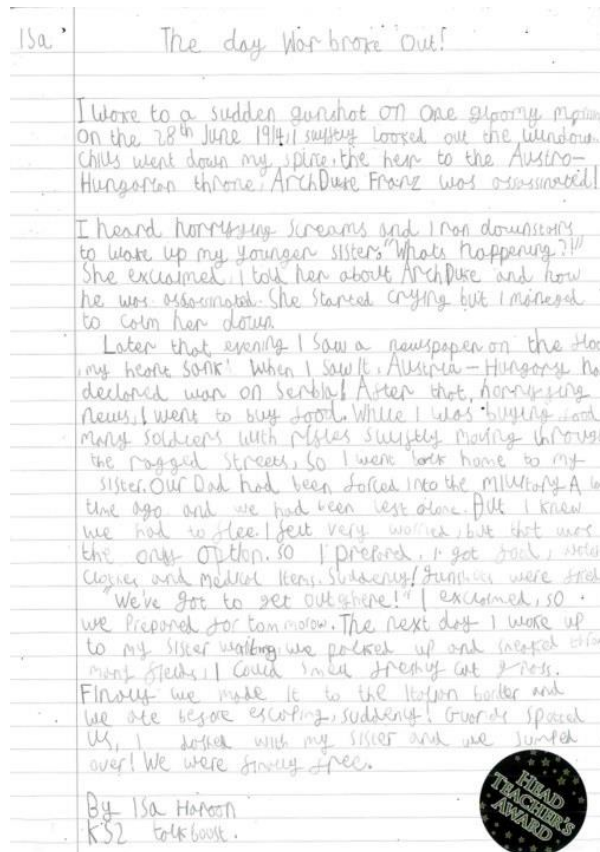 Isa
The day War broke out!
I woke to a sudden gunshot on one gloomy morn
On the 28th June 1914, I swiftly looked out the window.
Chills went down my spine, the heir to the Austro-
Hungarian throne, ArchDuke Franz was assassinated!
I heard horrifying screams and I ran downstairs
to wake up my younger sister. "Whats happening?!"
She exclaimed, I told her about ArchDuke and how
he was assassinated. She started crying but I maneged
to calm her down.
Later that evening I saw a newspaper on the floo
my heart sank! When I saw it, Austria - Hungary ha
declared war on Serbia! After that, horrifying
news, I went to buy food. While I was buying food
many soldiers with rifles swiftly moving through
the ragged streets, so I went back home to my
sister. Our Dad had been forced into the military A lo
time ago and we had been left alone. But I knew
we had to flee. I felt very worried, but that was
the only option. So I prepard, I got food, water
Clothes and medical items. Suddenly! Gunshots were fired
We've got to get out of here!" I exclaimed, so
we prepared for tommorow. The next day I woke up
to my sister waiting, we packed up and sneaked throu
many fields, I could smell freshly cut grass.
Finally we made it to the Italian border and
we ate before escaping, suddenly! Guards spotted
us, I dashed with my sister and we jumped
over! We were finally free.
By Isa Haroon
KS2 talkboost.
HEAD
TEACHER'S
AWARD